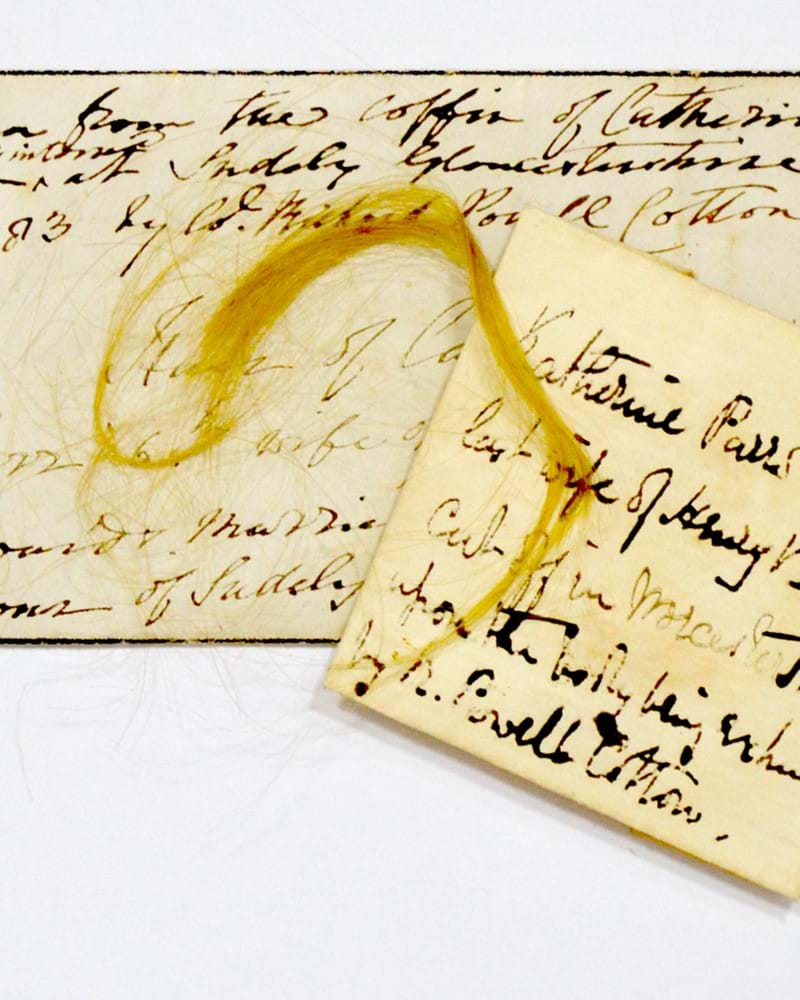 from the coffin of Catherin
interred at Sudely Gloucestershire
83 by Col. Richard Powell Cotton
Hair of Ca
6. wife o
wards. Marrie
of Sudely
Katherine Parr
last wife of Henry V
Cut off in Worcester
upon the body being exhu
by R. Powell Cotton.